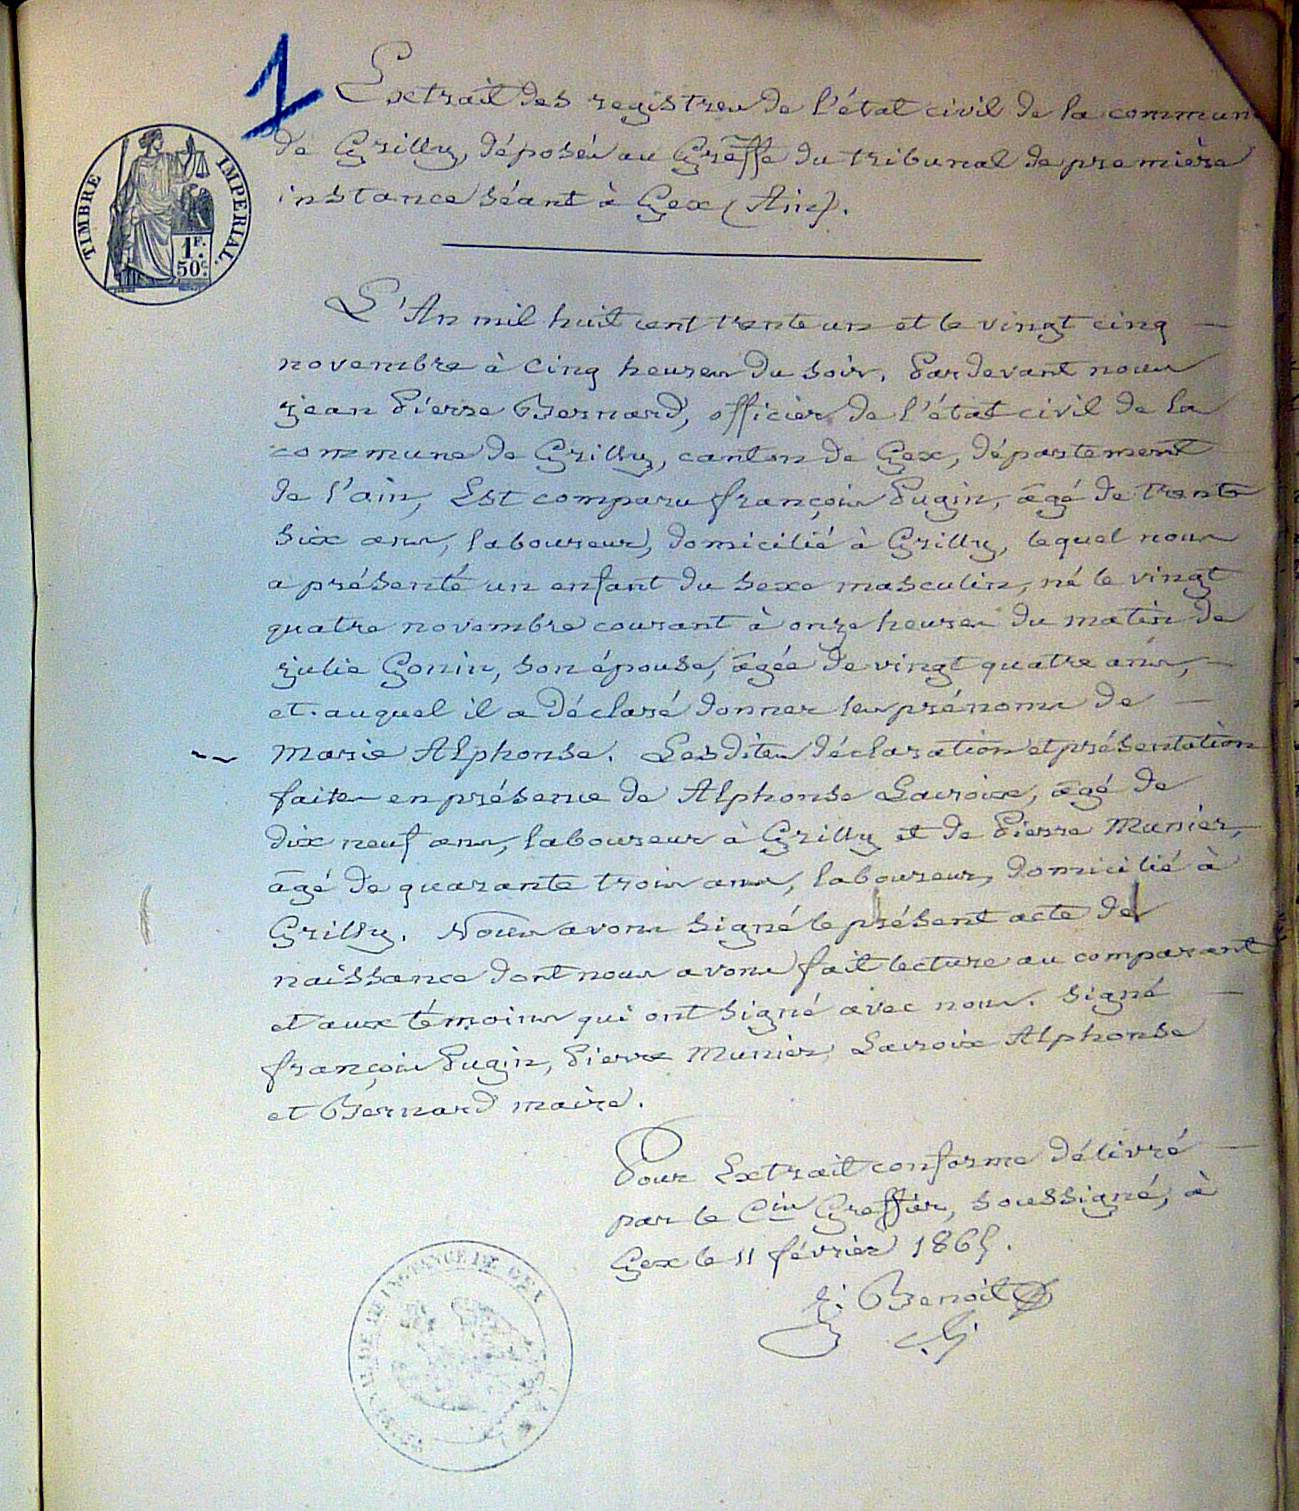 1
Extrait des registres de l'état civil de la commune
de Grilly, déposés au Greffe du tribunal de première
instance séant à Gex (Ain).
TIMBRE IMPERIAL.
1F.
50c.
L'An mil huit cent trente un et le vingt cinq
novembre à cinq heures du soir. Pardevant nous
jean Pierre Bernard, officier de l'état civil de la
commune de Grilly, canton de Gex, département
de l'ain, Est comparu françois Pugin, âgé de trente
six ans, laboureur, domicilié à Grilly, lequel nous
a présenté un enfant du sexe masculin, né le vingt
quatre novembre courant à onze heures du matin de
julie Gonin, son épouse, âgée de vingt quatre ans,
et auquel il a déclaré donner les prénoms de
Marie Alphonse. Lesdites déclaration et présentation
faites en présence de Alphonse Lacroix, âgé de
dix neuf ans, laboureur à Grilly et de Pierre Munier,
âgé de quarante trois ans, laboureur, domicilié à
Grilly. Nous avons signé le présent acte de
naissance dont nous avons fait lecture au comparant
et aux témoins qui ont signé avec nous. Signé
françois Pugin, Pierre Munier, Lacroix Alphonse
et Bernard maire.
Pour Extrait conforme délivré
par le Cis Greffier, soussigné, à
Gex le 11 février 1865.
Benoit
INSTANCE DE GEX